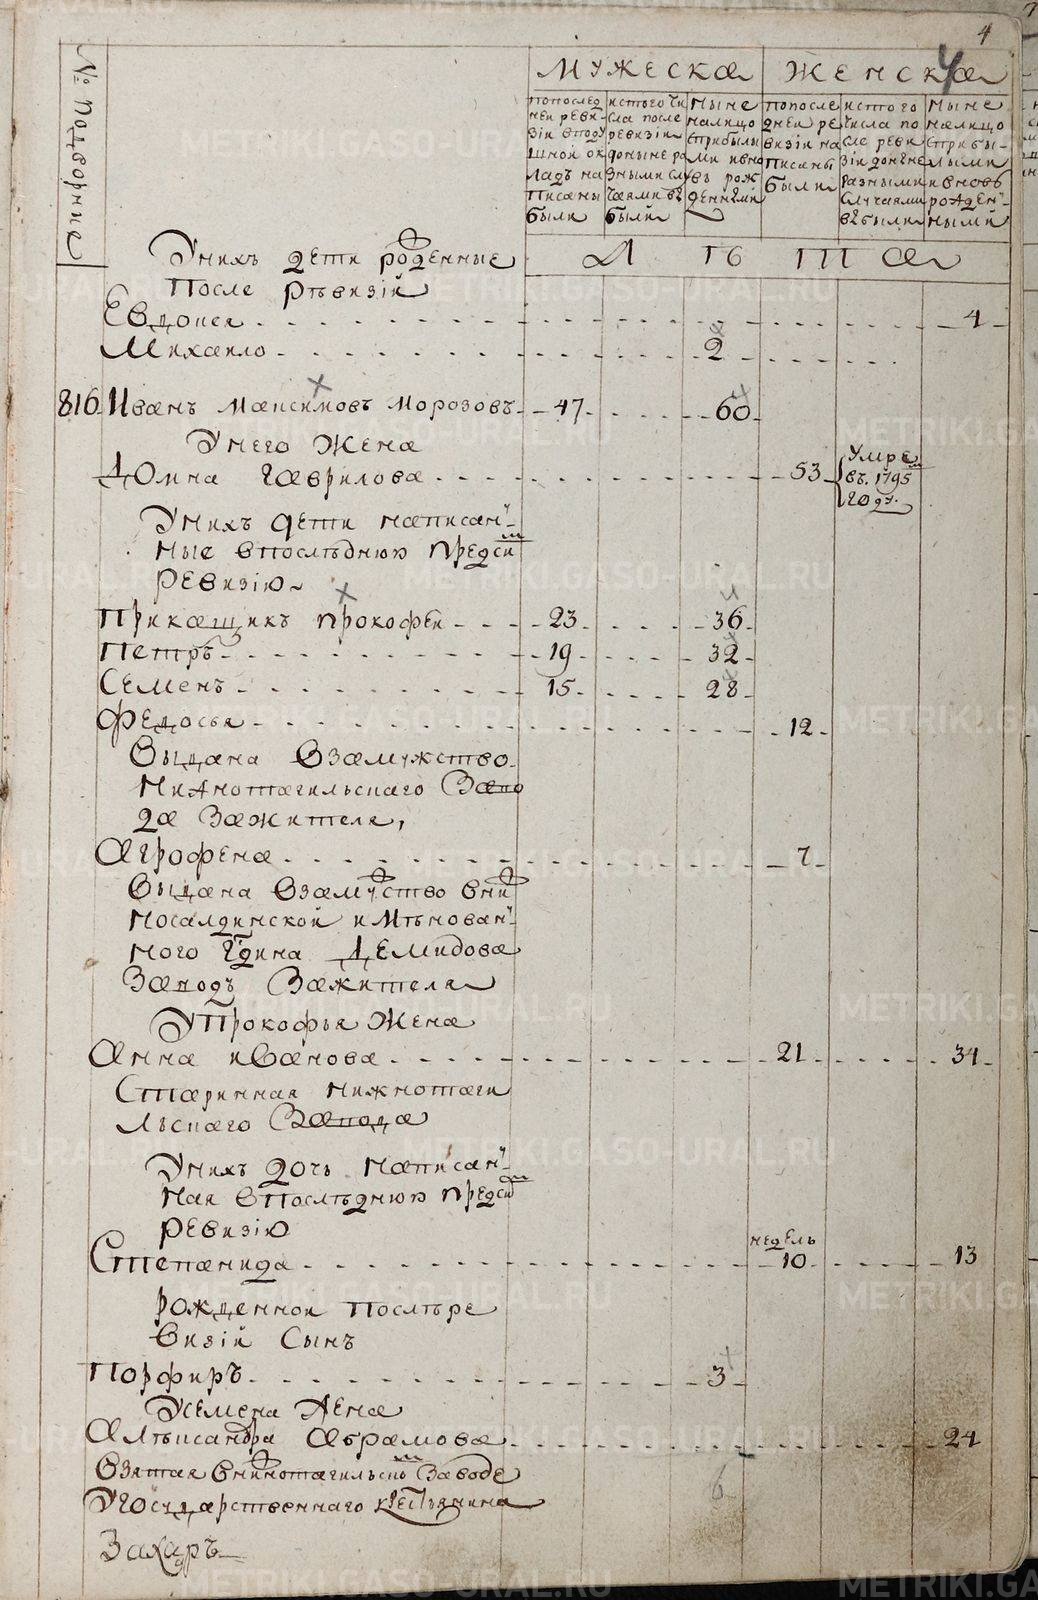 4
№ подворные
МУЖЕСКА
ЖЕНСКА
попослед
ней реви-
зіи вподу
шной ок
ладъ на
писаны
были
истого чи
сла после
ревизіи
доныне ра
зными слу
чаями въ
были
Ныне
налицо
сприбылы
ми ивно
въ рож
денными
попосле
дней ре
визіи на
писаны
были
истого
числа по
сле реви
зіи доныне
разными
случаями
въбыли
Ныне
налицо
сприбы-
лыми
ивновь
рожден-
ными
Л ѣ т а
Унихъ дети рожденные
после ревизіи
Евдокея 4
Михаило 2
816 Иванъ Максимовъ Морозовъ 47 60
Унего Жена
Домна Гаврилова 53 Умре въ 1795 году.
Унихъ дети написан-
ные впослѣднюю предси
ревизію
Прикащикъ Прокофеи 23 36
Петръ 19 32
Семенъ 15 28
Федосья 12
Выдана Взамужство
Нижнотагильскаго Заво
да Зажителя,
Агрофена 7
Выдана Взамуство вни
носалдинской имѣнован-
ного Гдина Демидова
Заводъ Зажителя
УПрокофья Жена
Анна Иванова 21 34
Старинная нижнотаги
льскаго Завода
Унихъ дочь написан-
ная впослѣднюю предси
ревизію
недель
Степанида 10 13
рожденной послѣре
визіи Сынъ
Порфиръ 3
Усемена Жена
Алѣксандра Абрамова 24
Взятая внижнотагильскомъ Заводе
Угосударственнаго крестьянина
6
Захаръ
METRIKI.GASO-URAL.RU